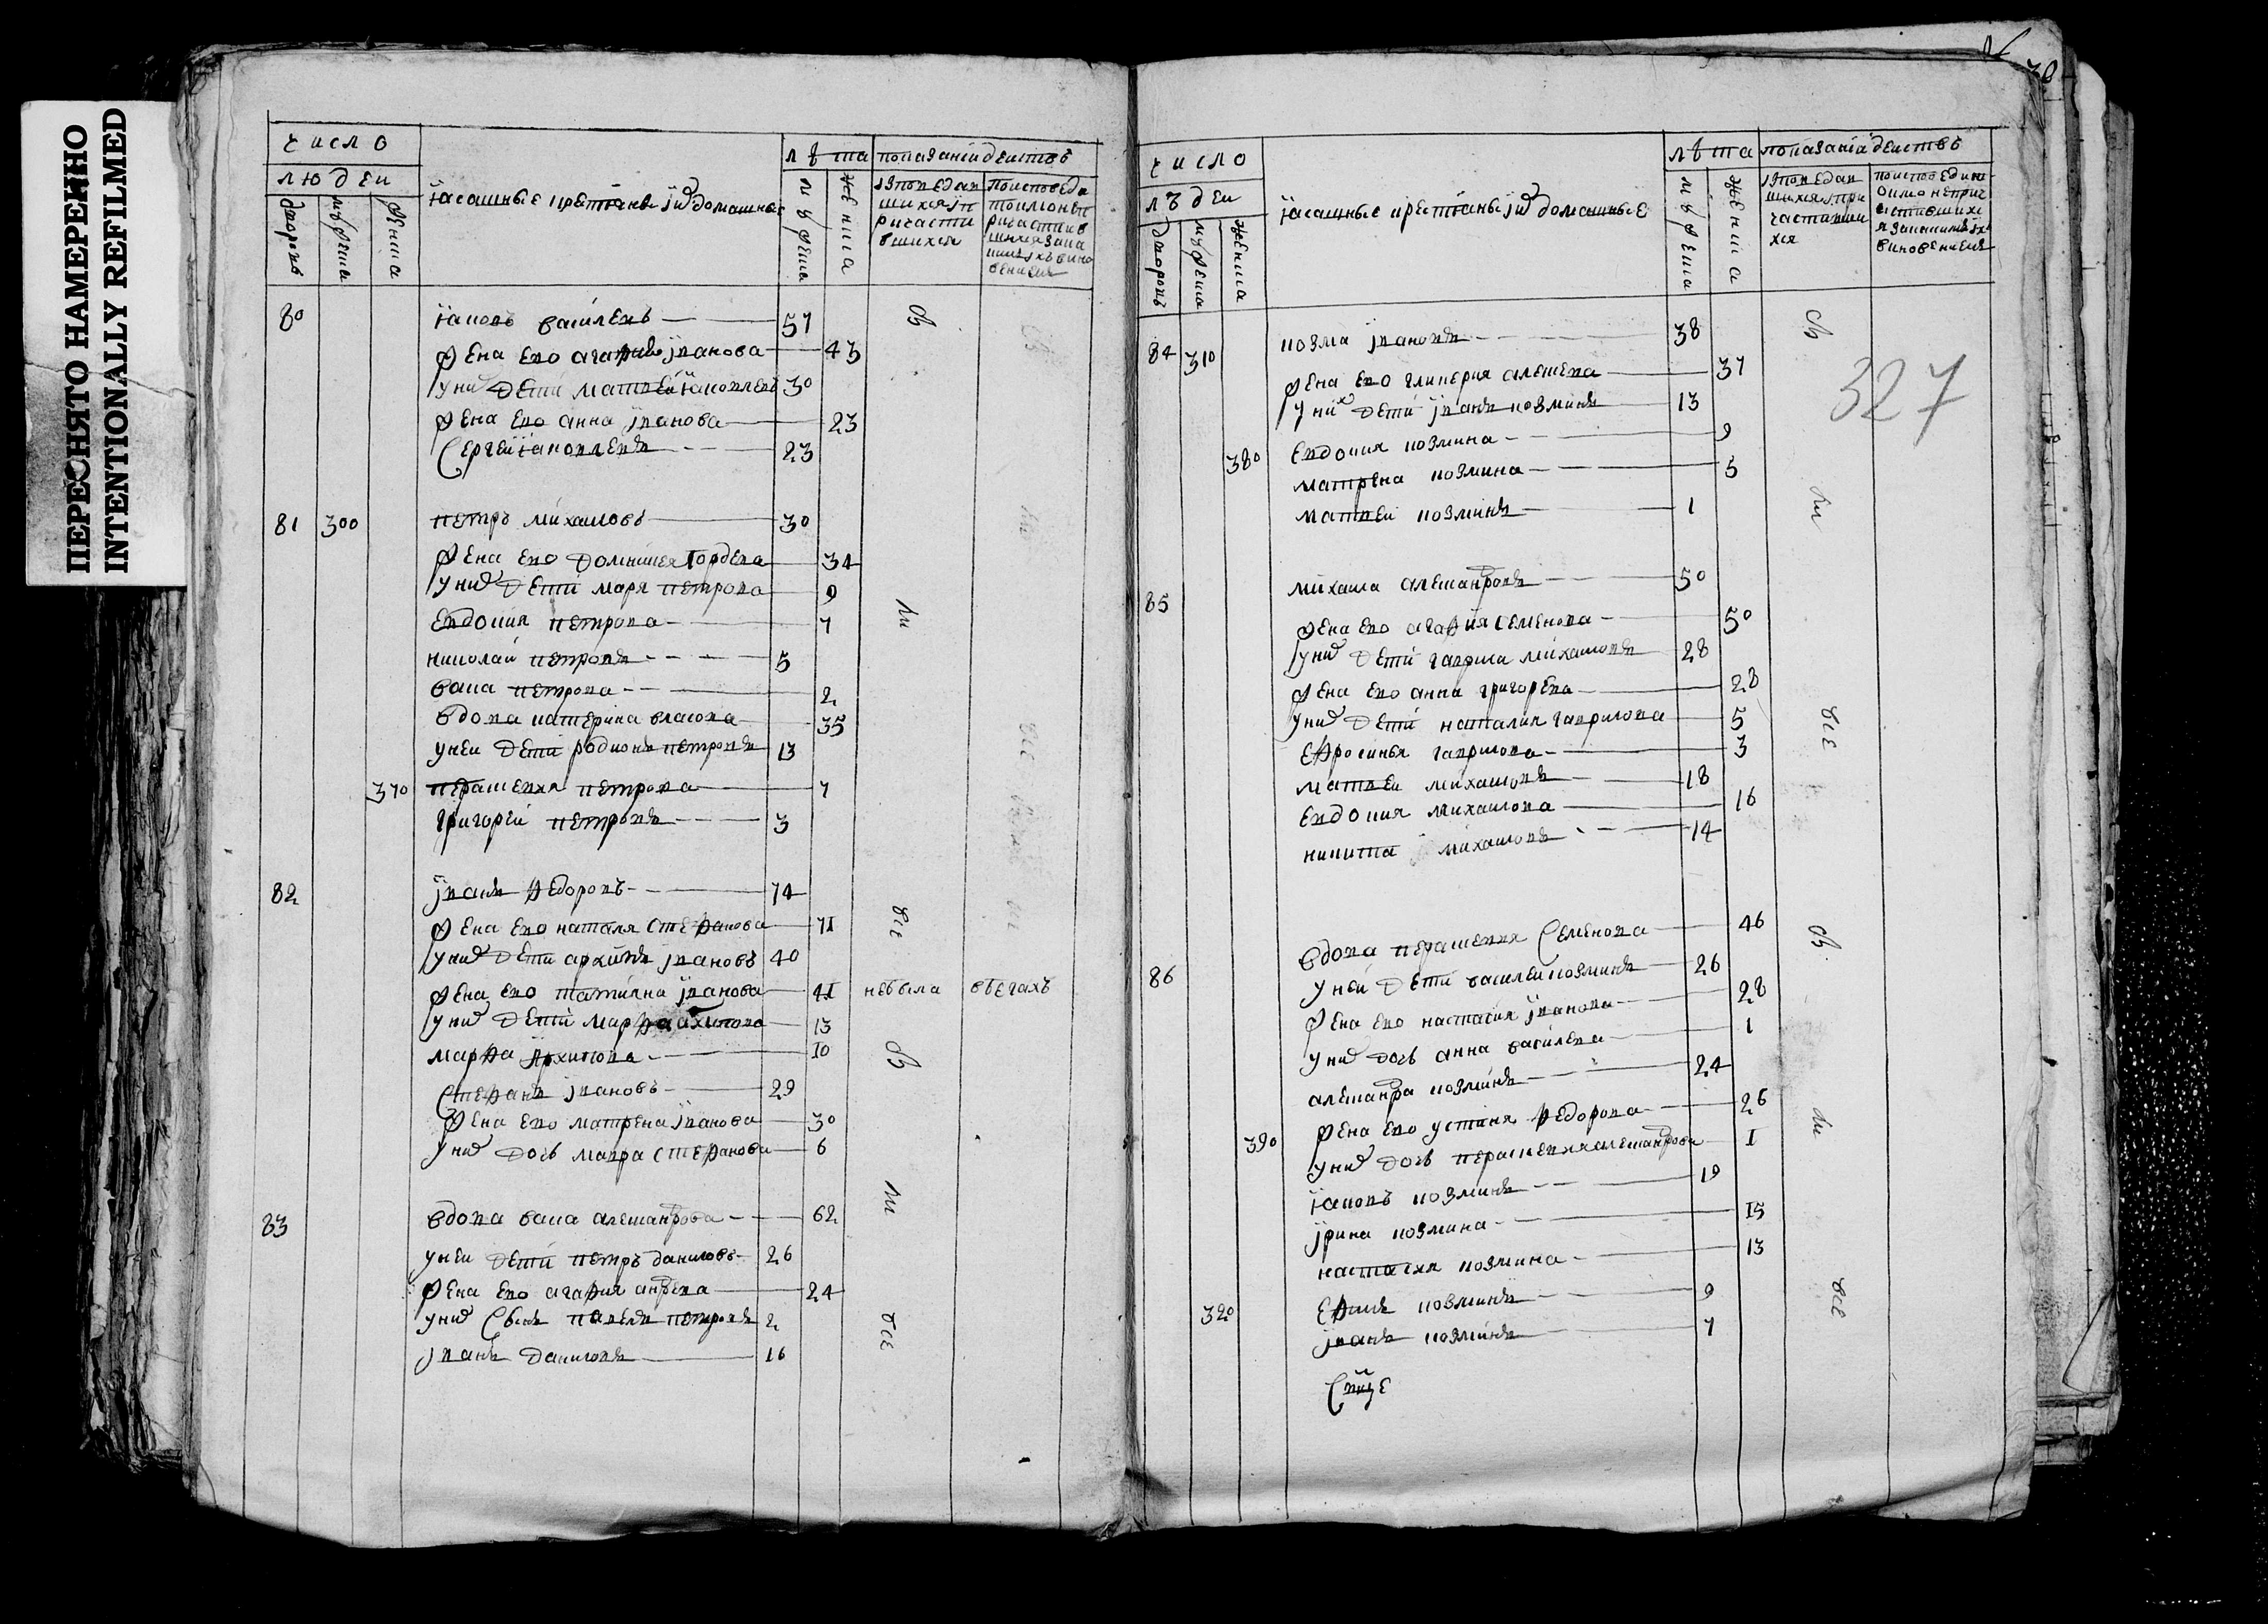 ПЕРЕСНЯТО НАМЕРЕННО
INTENTIONALLY REFILMED
число
людеи
дворовъ
мужеска
женска
ясашные крестьяне и домашные
лѣта
мужеска
женска
показанiи деиствъ
80 Яковъ василевъ 57
жена ево агафия иванова 43
у них дети матвеи яковлевъ 30
жена ево анна иванова 23
Сергеи яковлевъ 23
81 300 петръ михаиловъ 30
жена ево домникея гордева 34
у них дети маря петрова 9
евдокия петрова 7
николаи петровъ 5
васа петрова 2
вдова катерина власова 35
у неи дети родионъ петровъ 13
370 перасковя петрова 7
григореи петровъ 3
82 иванъ федоровъ 74
жена ево наталя стефанова 71
у них дети архипъ ивановъ 40
жена ево татияна иванова 41 небыла вбегахъ
у них дети марфа архипова 13
марфа архипова 10
Стефанъ ивановъ 29
жена ево матрена иванова 30
у них дочь мавра стефанова 6
83 вдова васа александрова 62
у неи дети петръ даниловъ 26
жена ево агафия андрева 24
у них сынъ павелъ петровъ 2
иванъ даниловъ 16
всi ли все
30
число
лъдеи
дворовъ
мужеска
женска
ясашные крестьяне и домашные
лѣта
мужеска
женска
показанiа деиствъ
327
84 310 козма ивановъ 38
жена ево гликерия алексева 37
у них дети иванъ козминъ 13
евдокия козмина 9
380 матрена козмина 5
матвеи козминъ 1
85 михаила александровъ 50
жена ево агафия семенова 50
у них дети гаврила михаиловъ 28
жена ево анна григорева 28
у них дети наталия гаврилова 5
ефросинья гаврилова 3
матвеи михаиловъ 18
евдокия михаилова 16
никита михаиловъ 14
86 вдова перасковя семенова 46
у неи дети василеи козминъ 26
жена ево настасия иванова 28
у них дочь анна василева 1
александра козминъ 24
жена ево устиня федорова 26
390 у них дочь перасковя алексанрова 1
яковъ козминъ 19
ирина козмина 15
настасия козмина 13
320 ефимъ козминъ 9
иванъ козминъ 7